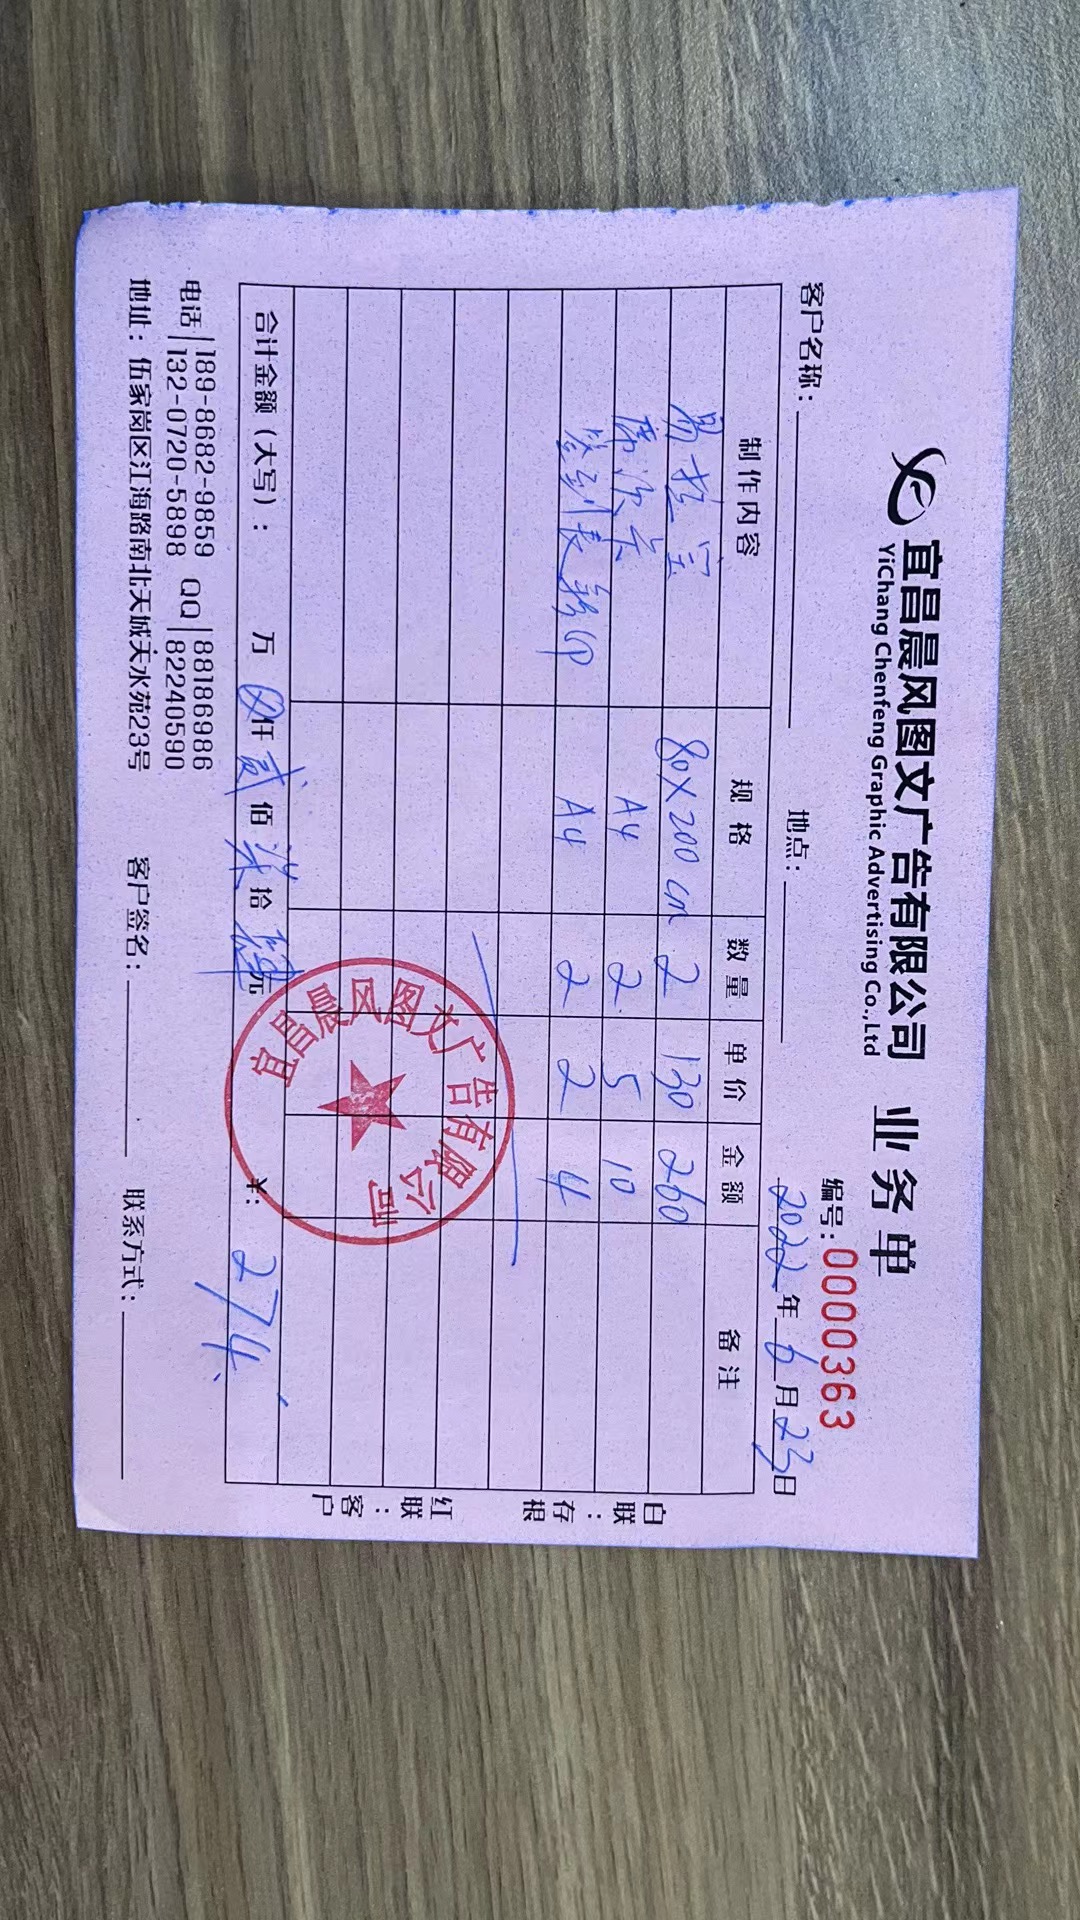 宜昌晨风图文广告有限公司 业务单
YiChang Chenfeng Graphic Advertising Co.,Ltd
编号:0000363
客户名称: 地点: 2022年6月23日
制作内容 规格 数量 单价 金额 备注
易拉宝 80X200cm 2 130 260
席次卡 A4 2 5 10
签到表彩印 A4 2 2 4
合计金额（大写）: 万 仟贰佰柒拾肆元 ¥: 274.
白联:存根
红联:客户
宜昌晨风图文广告有限公司
电话 189-8682-9859 QQ 88186986
132-0720-5898 82240590
地址: 伍家岗区江海路南北天城天水苑23号 客户签名: 联系方式: